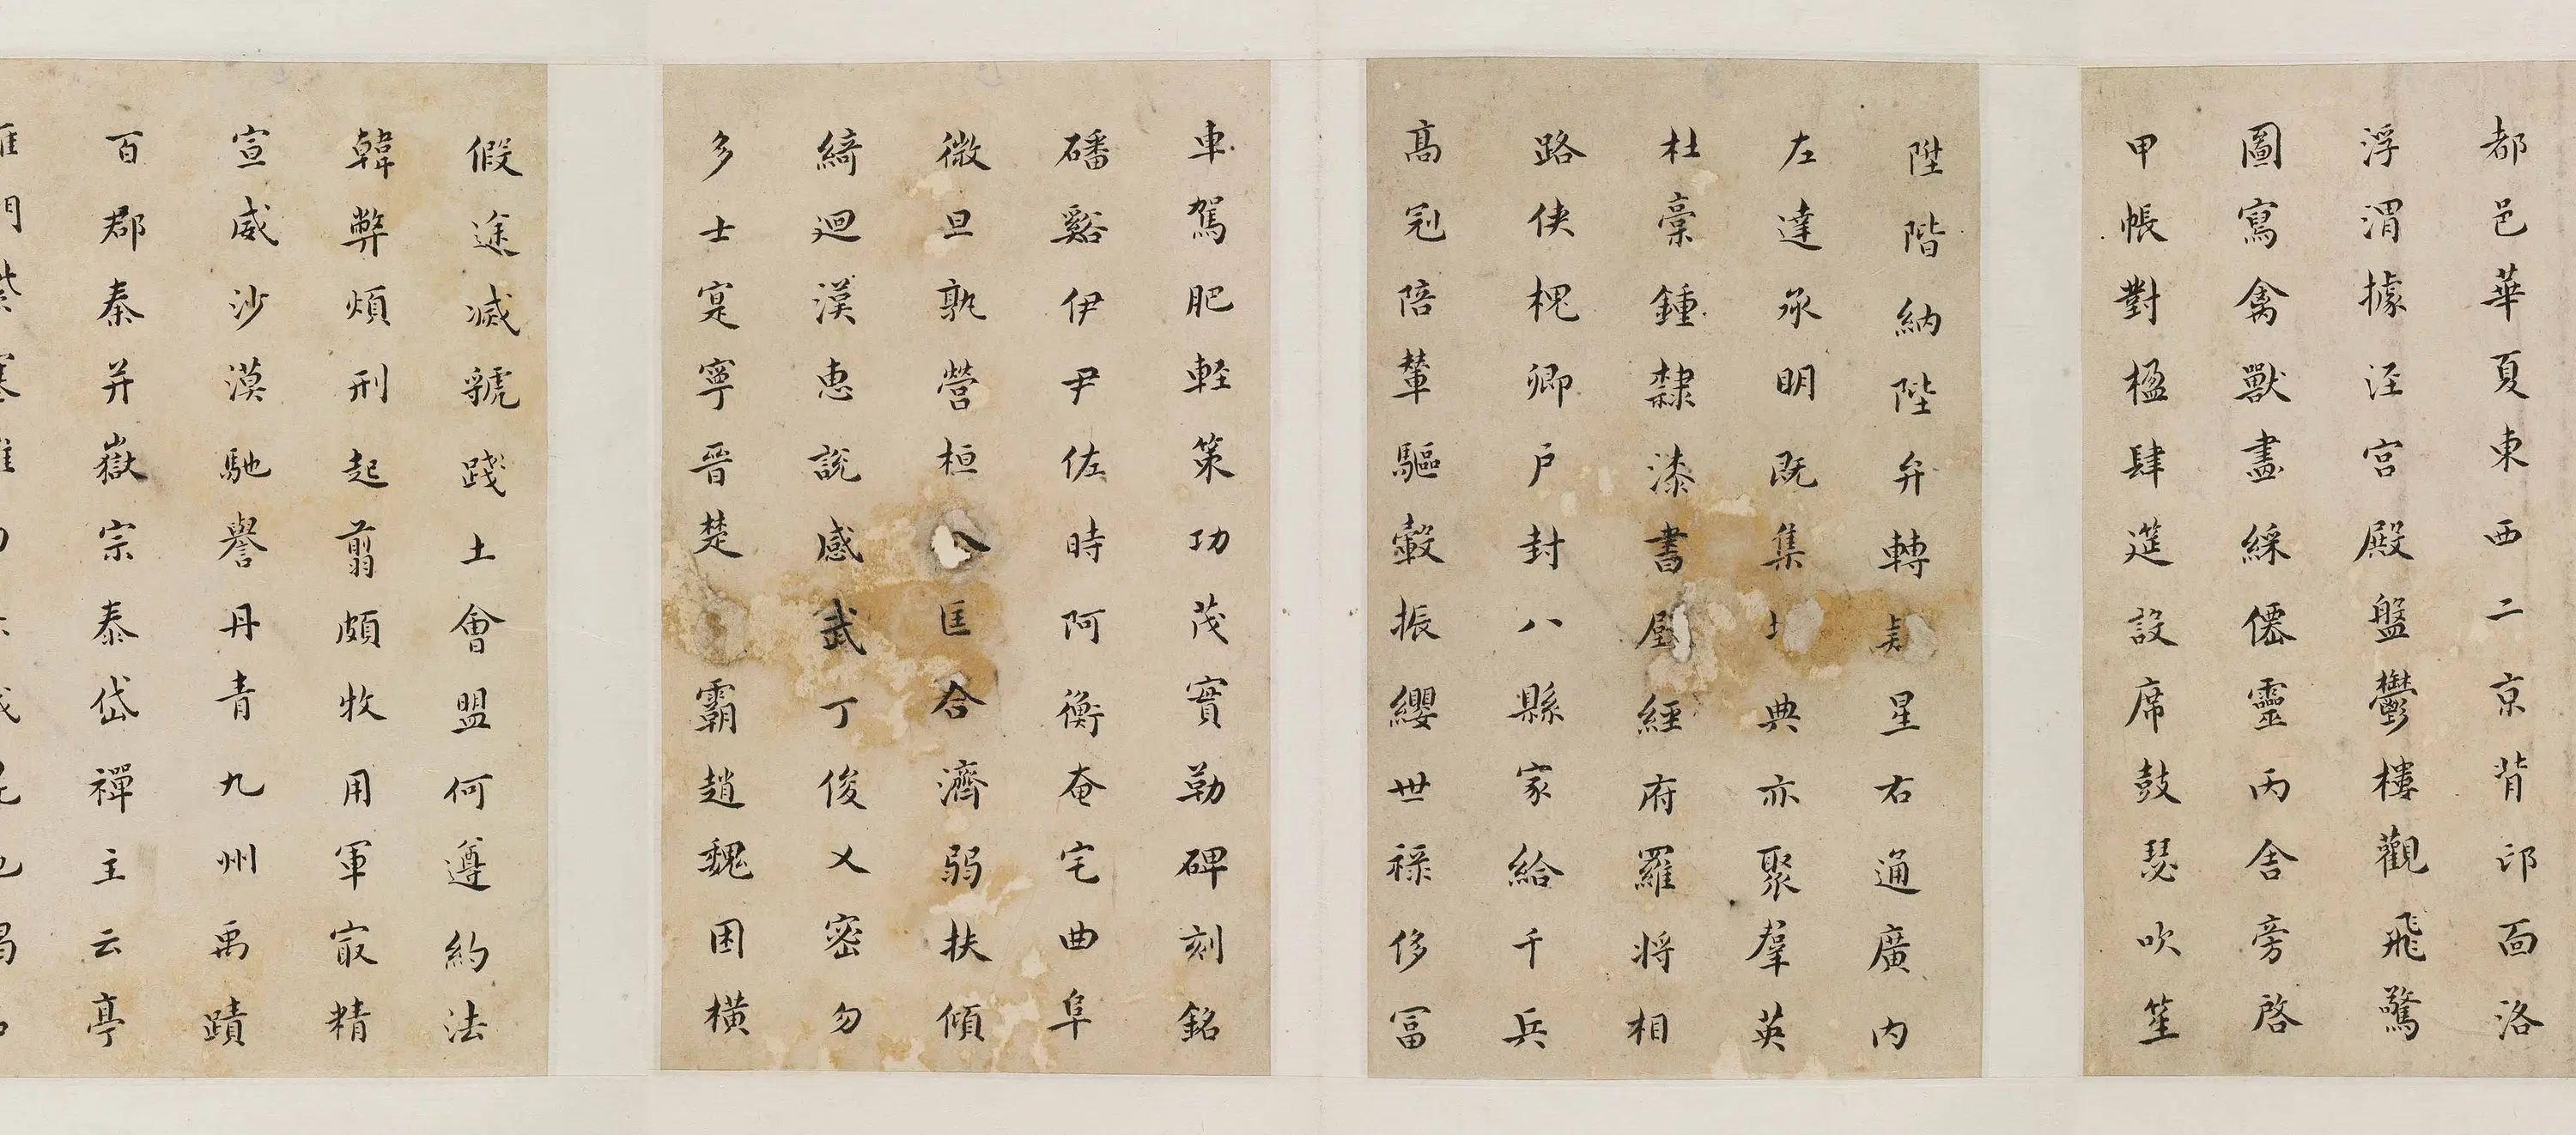 都邑華夏東西二京背邙面洛
浮渭據涇宮殿盤鬱樓觀飛驚
圖寫禽獸畫綵僊靈丙舍旁啓
甲帳對楹肆筵設席鼓瑟吹笙
陞階納陛弁轉疑星右通廣內
左達承明既集典亦聚羣英
杜稾鍾隸漆書壁經府羅將相
路俠槐卿戶封八縣家給千兵
髙冠陪輦驅轂振纓世祿侈冨
車駕肥軽策功茂實勒碑刻銘
磻谿伊尹佐時阿衡奄宅曲阜
微旦孰營桓公匡合濟弱扶傾
綺迴漢惠說感武丁俊乂密勿
多士寔寧晉楚霸趙魏困橫
假途滅虢踐土會盟何遵約法
韓弊煩刑起翦頗牧用軍冣精
宣威沙漠馳譽丹青九州禹蹟
百郡秦并嶽宗泰岱禪主云亭